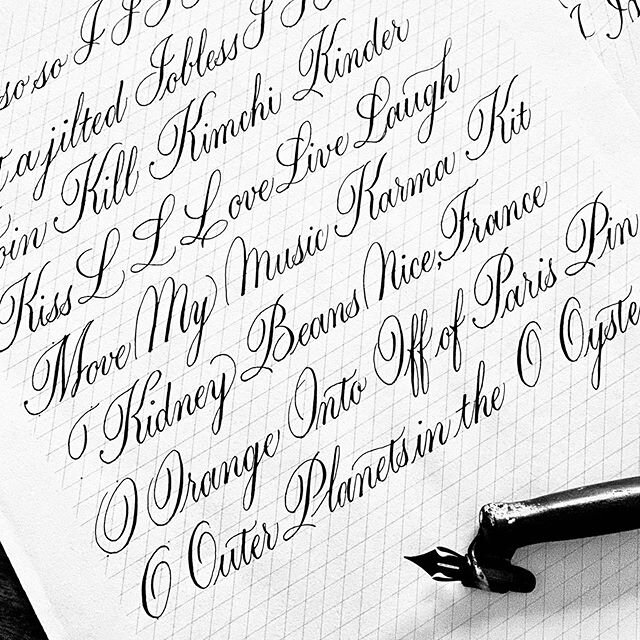 so so I I I
a jilted Jobless I I
Join Kill Kimchi Kinder
Kiss L L L ove Live Laugh
Move My Music Karma Kit
Kidney Beans Nice, France
O Orange Onto Off of Paris Pin
O Outer Planets in the O Oyste